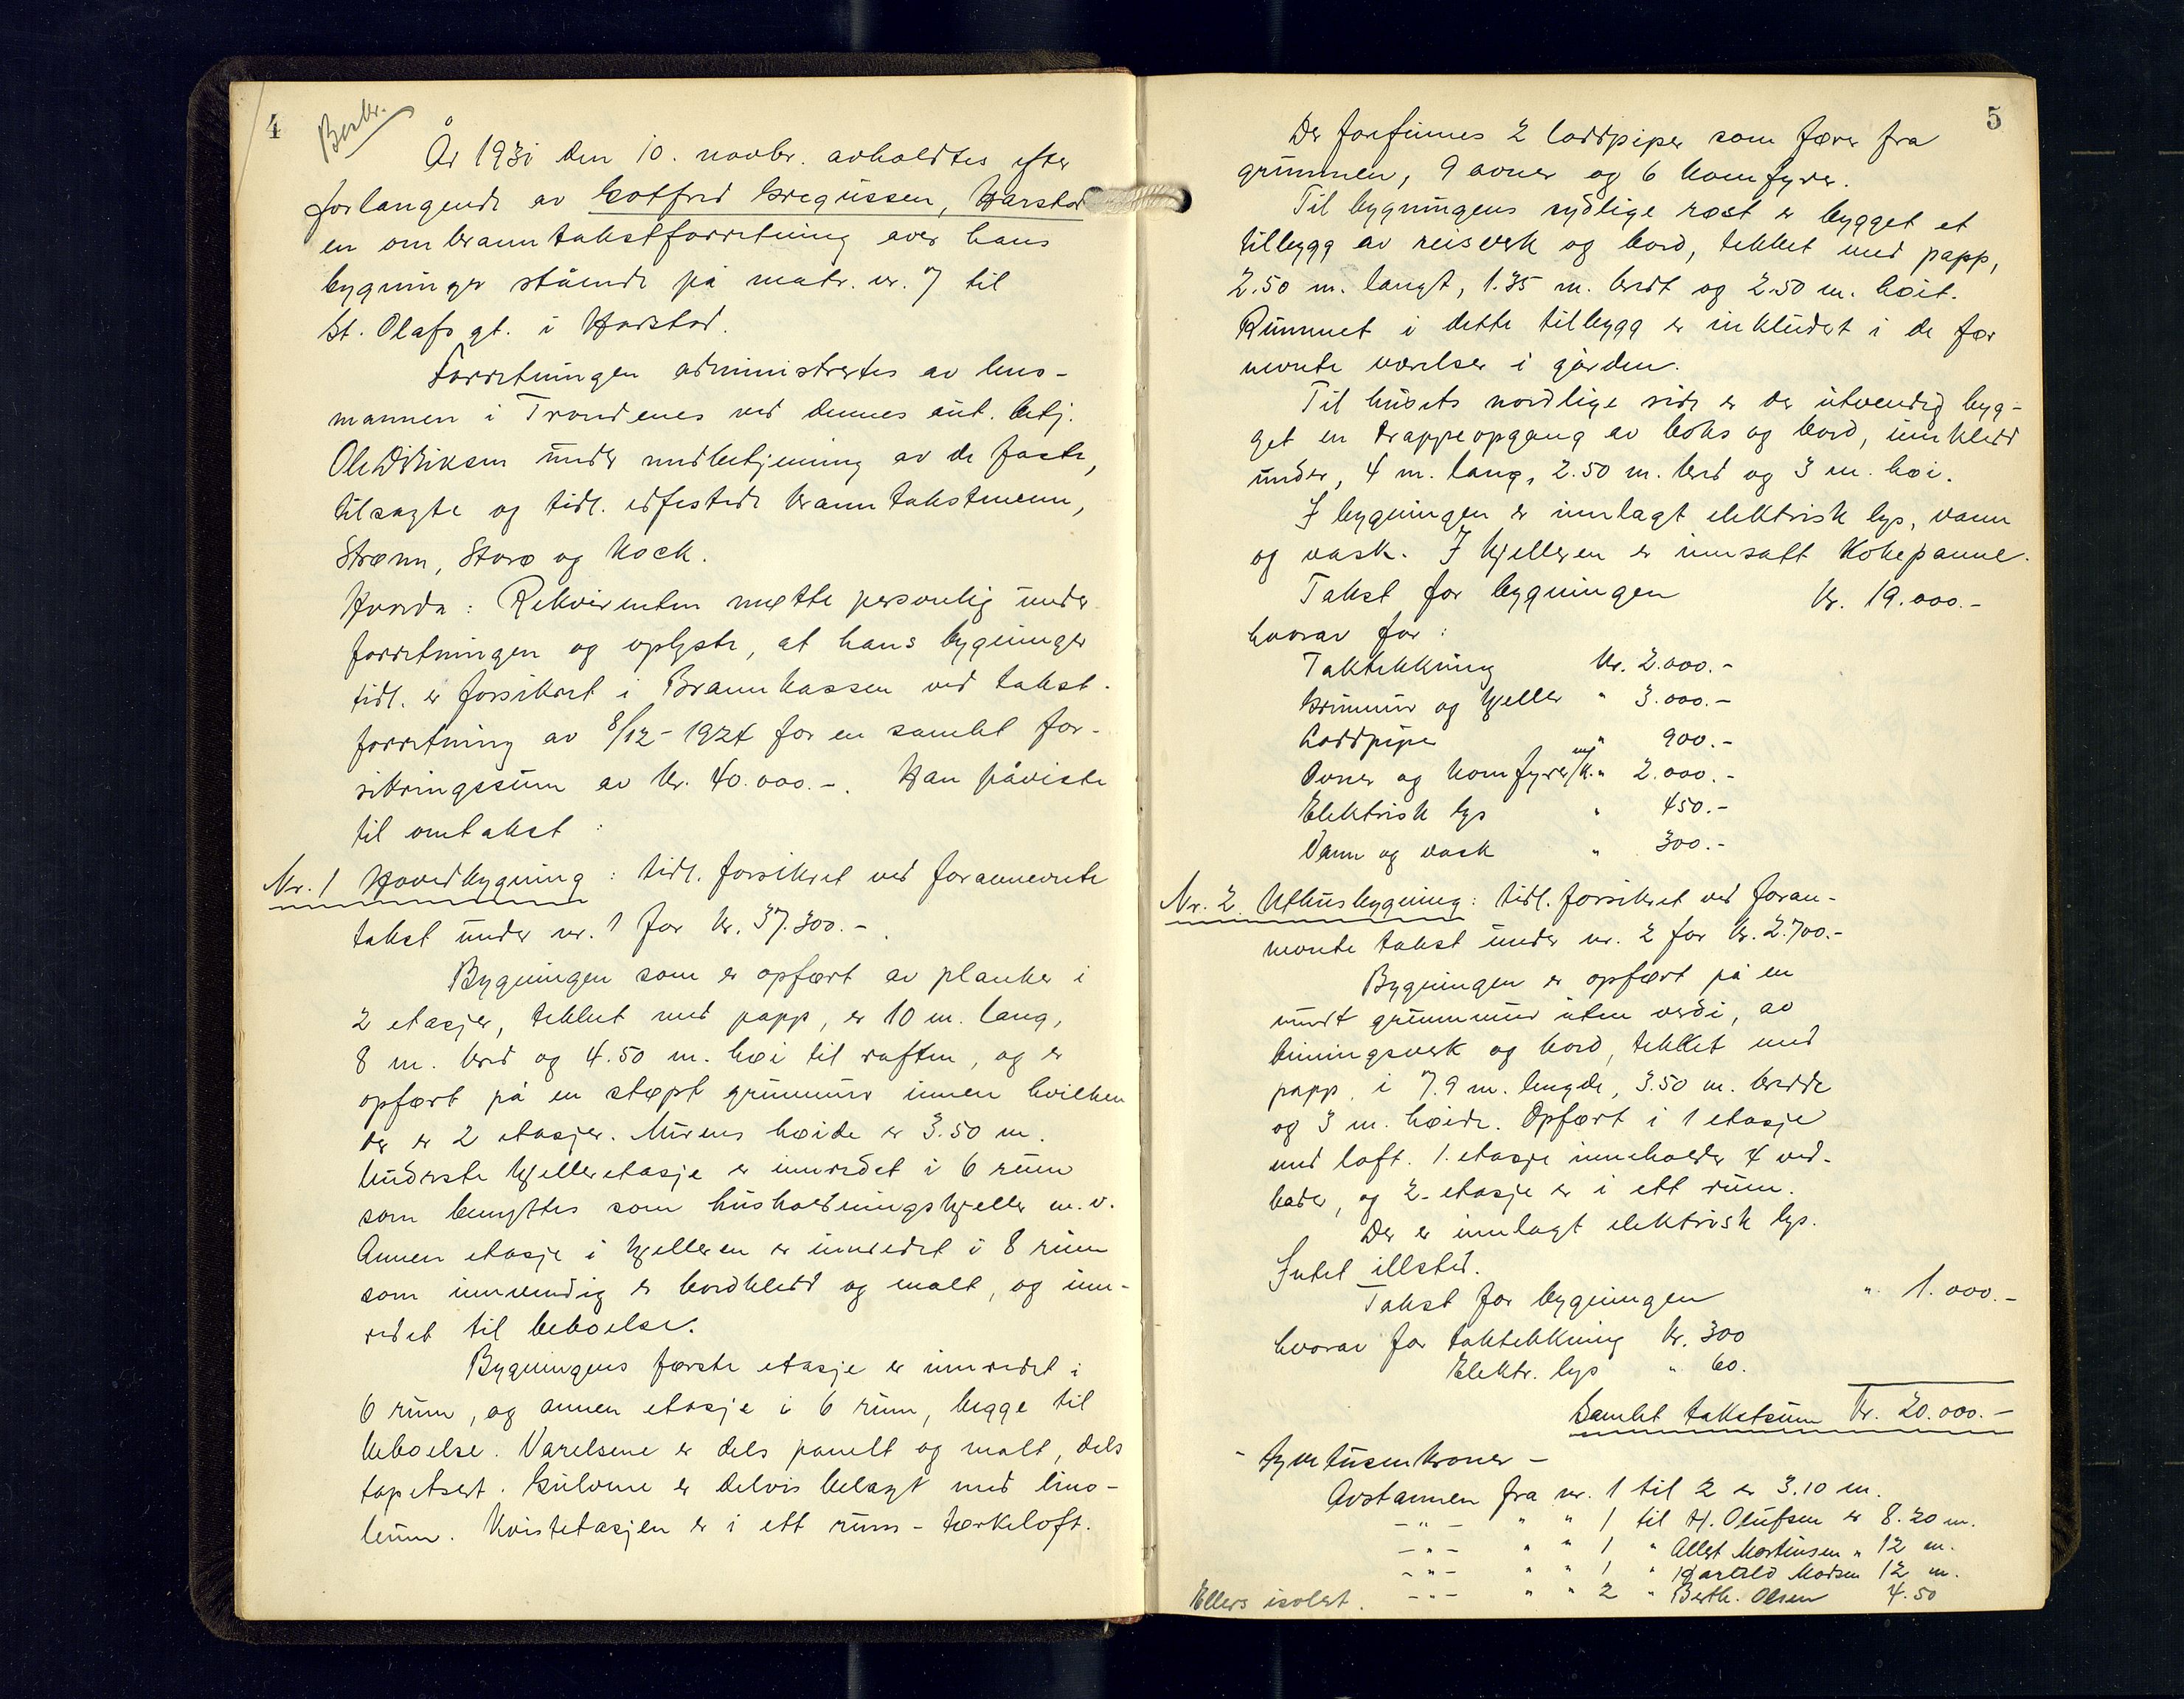 4
Beskr.
År 1931 den 10. novbr. avholdtes efter
forlangende av Gotfred Gregussen, Harstad
en ombranntakstforretning over hans
bygninger stående på matr. nr. 7 til
St. Olafs gt. i Harstad.
Forretningen administrertes av lens-
mannen i Trondenes ved dennes aut. betj.
Ole Didriksen under medbetjening av de faste,
tilsagte og tidl. edfestede branntakstmenn,
Strøm, Storø og Kock.
Hvorda: Rekvirenten møtte personlig under
forretningen og oplyste, at hans bygninger
tidl. er forsikret i Brannkassen ved takst-
forretning av 8/12-1924 for en samlet for-
sikringssum av kr. 40.000.-. Han påviste
til omtakst:
Nr. 1 Hovedbygning: tidl. forsikret ved forannevnte
takst under nr. 1 for kr. 37.300.-.
Bygningen som er opført av planker i
2 etasjer, tekket med papp, er 10 m. lang,
8 m. bred og 4.50 m. høi til raften, og er
opført på en støpt grunnmur innen hvilken
der er 2 etasjer. Murens høide er 3.50 m.
Underste kjelleretasje er innredet i 6 rum
som benyttes som husholdningskjeller m.v.
Annen etasje i kjelleren er innredet i 8 rum
som innvendig er bordkledd og malt, og inn-
redet til beboelse.
Bygningens første etasje er innredet i
6 rum, og annen etasje i 6 rum, begge til
beboelse. Værelsene er dels panelt og malt, dels
tapetsert. Gulvene er delvis belagt med lino-
leum. Kvistetasjen er i ett rum - tørkeloft.
5
Der forefinnes 2 loddpiper som fører fra
grunnen, 9 ovner og 6 komfyrer.
Til bygningens sydlige røst er bygget et
tillegg av reisverk og bord, tekket med papp,
2.50 m. langt, 1.35 m. bredt og 2.50 m. høit.
Rummet i dette tillegg er inkludert i de før
nevnte værelser i gården.
Til husets nordlige side er der utvendig byg-
get en trappeopgang av boks og bord, innkledd
under, 4 m. lang, 2.50 m. bred og 3 m. høi.
I bygningen er innlagt elektrisk lys, vann
og vask. I kjelleren er innsatt kokepanne.
Takst for bygningen Kr. 19.000.-
hvorav for:
Taktekking Kr. 2.000.-
Grunnmur og kjeller " 3.000.-
Loddpipe " 900.-
Ovner og komfyrer m/k. " 2.000.-
Elektrisk lys " 450.-
Vann og vask " 300.-
Nr. 2. Uthusbygning: tidl. forsikret ved foran-
nevnte takst under nr. 2 for kr. 2.700.-
Bygningen er opført på en
murt grunnmur uten verdi, av
binningsverk og bord, tekket med
papp, i 7.9 m. lengde, 3.50 m. bredde
og 3 m. høide. Opført i 1 etasje
med loft. 1. etasje inneholder 4 ved-
boder, og 2. etasje er i ett rum.
Der er innlagt elektrisk lys.
Intet illsted.
Takst for bygningen " 1.000.-
hvorav for taktekking kr. 300
Elektr. lys " 60.
Samlet takstsum kr. 20.000.-
- tyvetusen kroner -
Avstannen fra nr. 1 til 2 er 3.10 m.
-"- " " 1 til H. Olufsen er 8.20 m.
-"- " " 1 " Albert Mortensen " 12 m.
-"- " " 1 " Harald Madsen 12 m.
-"- " " 2 " Berth. Olsen 4.50
Ellers isolert.